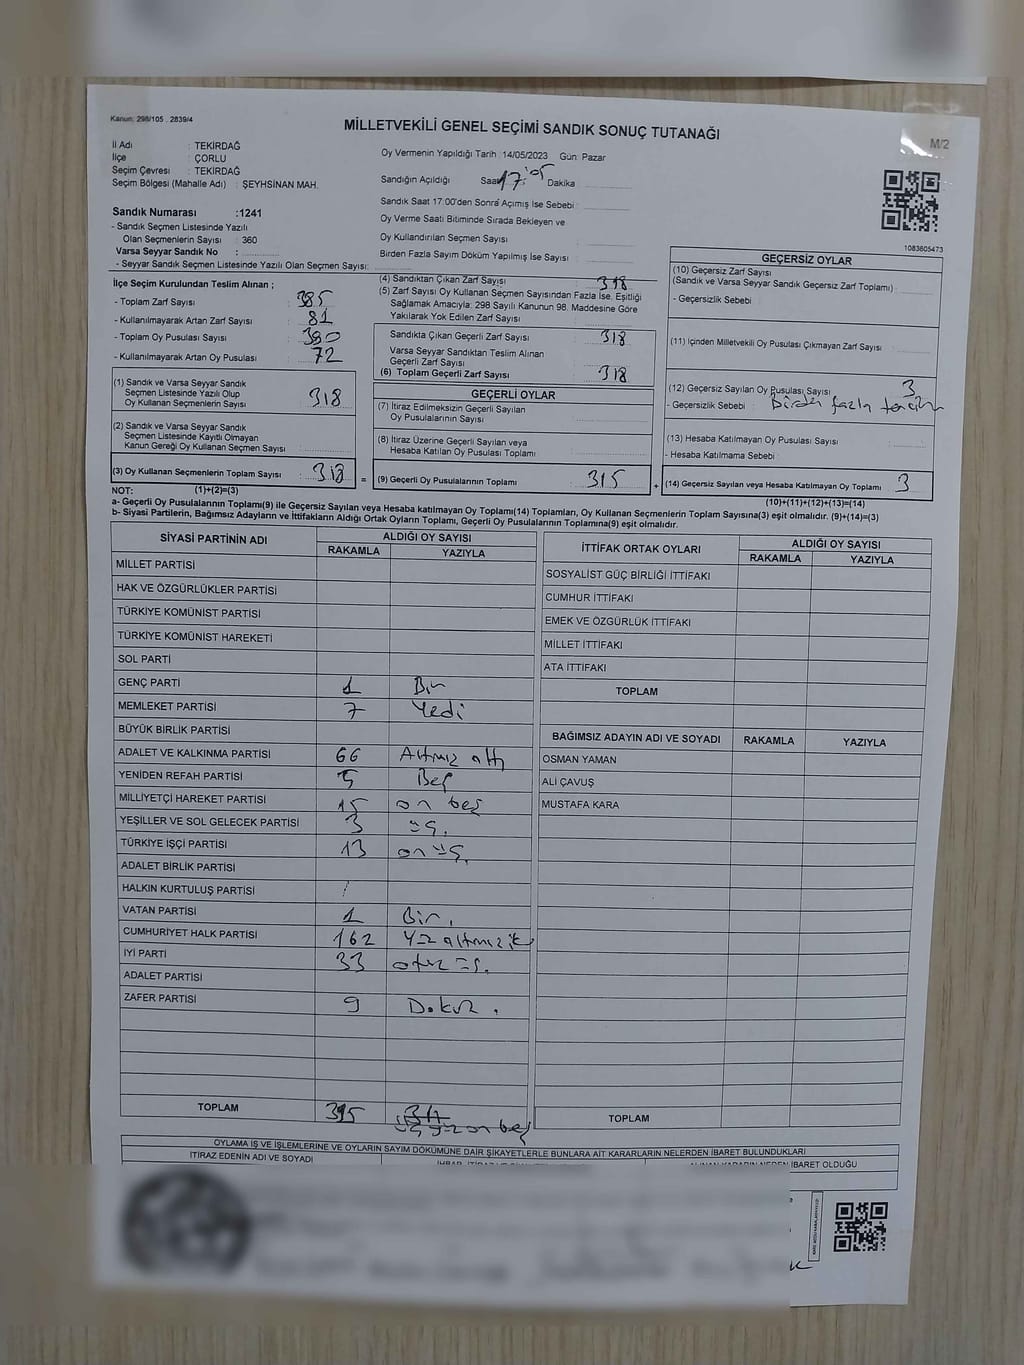 Kanun: 298/105 . 2839/4
MİLLETVEKİLİ GENEL SEÇİMİ SANDIK SONUÇ TUTANAĞI
M/2
İl Adı : TEKİRDAĞ
İlçe : ÇORLU
Seçim Çevresi : TEKİRDAĞ
Seçim Bölgesi (Mahalle Adı) : ŞEYHSİNAN MAH.
Sandık Numarası :1241
- Sandık Seçmen Listesinde Yazılı
Olan Seçmenlerin Sayısı : 360
Varsa Seyyar Sandık No :
- Seyyar Sandık Seçmen Listesinde Yazılı Olan Seçmen Sayısı:
Oy Vermenin Yapıldığı Tarih :14/05/2023 Gün: Pazar
Sandığın Açıldığı Saat 17:05 Dakika
Sandık Saat 17:00'den Sonra Açımış İse Sebebi :
Oy Verme Saati Bitiminde Sırada Bekleyen ve
Oy Kullandırılan Seçmen Sayısı :
Birden Fazla Sayım Döküm Yapılmış İse Sayısı :
1083605473
İlçe Seçim Kurulundan Teslim Alınan ;
- Toplam Zarf Sayısı : 385
- Kullanılmayarak Artan Zarf Sayısı : 81
- Toplam Oy Pusulası Sayısı : 380
- Kullanılmayarak Artan Oy Pusulası : 72
(1) Sandık ve Varsa Seyyar Sandık
Seçmen Listesinde Yazılı Olup
Oy Kullanan Seçmenlerin Sayısı : 318
(2) Sandık ve Varsa Seyyar Sandık
Seçmen Listesinde Kayıtlı Olmayan
Kanun Gereği Oy Kullanan Seçmen Sayısı :
(3) Oy Kullanan Seçmenlerin Toplam Sayısı : 318 =
(4) Sandıktan Çıkan Zarf Sayısı : 318
(5) Zarf Sayısı Oy Kullanan Seçmen Sayısından Fazla İse, Eşitliği
Sağlamak Amacıyla: 298 Sayılı Kanunun 98. Maddesine Göre
Yakılarak Yok Edilen Zarf Sayısı :
Sandıkta Çıkan Geçerli Zarf Sayısı : 318
Varsa Seyyar Sandıktan Teslim Alınan
Geçerli Zarf Sayısı :
(6) Toplam Geçerli Zarf Sayısı : 318
GEÇERLİ OYLAR
(7) İtiraz Edilmeksizin Geçerli Sayılan
Oy Pusulalarının Sayısı :
(8) İtiraz Üzerine Geçerli Sayılan veya
Hesaba Katılan Oy Pusulası Toplamı :
(9) Geçerli Oy Pusulalarının Toplamı : 315 +
GEÇERSİZ OYLAR
(10) Geçersiz Zarf Sayısı
(Sandık ve Varsa Seyyar Sandık Geçersiz Zarf Toplamı) :
- Geçersizlik Sebebi :
(11) İçinden Milletvekili Oy Pusulası Çıkmayan Zarf Sayısı :
(12) Geçersiz Sayılan Oy Pusulası Sayısı : 3
- Geçersizlik Sebebi : Birden fazla tercih
(13) Hesaba Katılmayan Oy Pusulası Sayısı :
- Hesaba Katılmama Sebebi :
(14) Geçersiz Sayılan veya Hesaba Katılmayan Oy Toplamı : 3
NOT: (1)+(2)=(3) (10)+(11)+(12)+(13)=(14)
a- Geçerli Oy Pusulalarının Toplamı(9) ile Geçersiz Sayılan veya Hesaba katılmayan Oy Toplamı(14) Toplamları, Oy Kullanan Seçmenlerin Toplam Sayısına(3) eşit olmalıdır. (9)+(14)=(3)
b- Siyasi Partilerin, Bağımsız Adayların ve İttifakların Aldığı Ortak Oyların Toplamı, Geçerli Oy Pusulalarının Toplamına(9) eşit olmalıdır.
SİYASİ PARTİNİN ADI ALDIĞI OY SAYISI
RAKAMLA YAZIYLA
MİLLET PARTİSİ
HAK VE ÖZGÜRLÜKLER PARTİSİ
TÜRKİYE KOMÜNİST PARTİSİ
TÜRKİYE KOMÜNİST HAREKETİ
SOL PARTİ
GENÇ PARTİ 1 Bir
MEMLEKET PARTİSİ 7 Yedi
BÜYÜK BİRLİK PARTİSİ
ADALET VE KALKINMA PARTİSİ 66 Altmış altı
YENİDEN REFAH PARTİSİ 5 Beş
MİLLİYETÇİ HAREKET PARTİSİ 15 on beş
YEŞİLLER VE SOL GELECEK PARTİSİ 3 üç.
TÜRKİYE İŞÇİ PARTİSİ 13 on üç.
ADALET BİRLİK PARTİSİ
HALKIN KURTULUŞ PARTİSİ /
VATAN PARTİSİ 1 Bir.
CUMHURİYET HALK PARTİSİ 162 Yüz altmış iki
İYİ PARTİ 33 otuz üç.
ADALET PARTİSİ
ZAFER PARTİSİ 9 Dokuz.
TOPLAM 315 üç yüz on beş
İTTİFAK ORTAK OYLARI ALDIĞI OY SAYISI
RAKAMLA YAZIYLA
SOSYALİST GÜÇ BİRLİĞİ İTTİFAKI
CUMHUR İTTİFAKI
EMEK VE ÖZGÜRLÜK İTTİFAKI
MİLLET İTTİFAKI
ATA İTTİFAKI
TOPLAM
BAĞIMSIZ ADAYIN ADI VE SOYADI RAKAMLA YAZIYLA
OSMAN YAMAN
ALİ ÇAVUŞ
MUSTAFA KARA
TOPLAM
OYLAMA İŞ VE İŞLEMLERİNE VE OYLARIN SAYIM DÖKÜMÜNE DAİR ŞİKAYETLERLE BUNLARA AİT KARARLARIN NELERDEN İBARET BULUNDUKLARI
İTİRAZ EDENİN ADI VE SOYADI
İBARET OLDUĞU